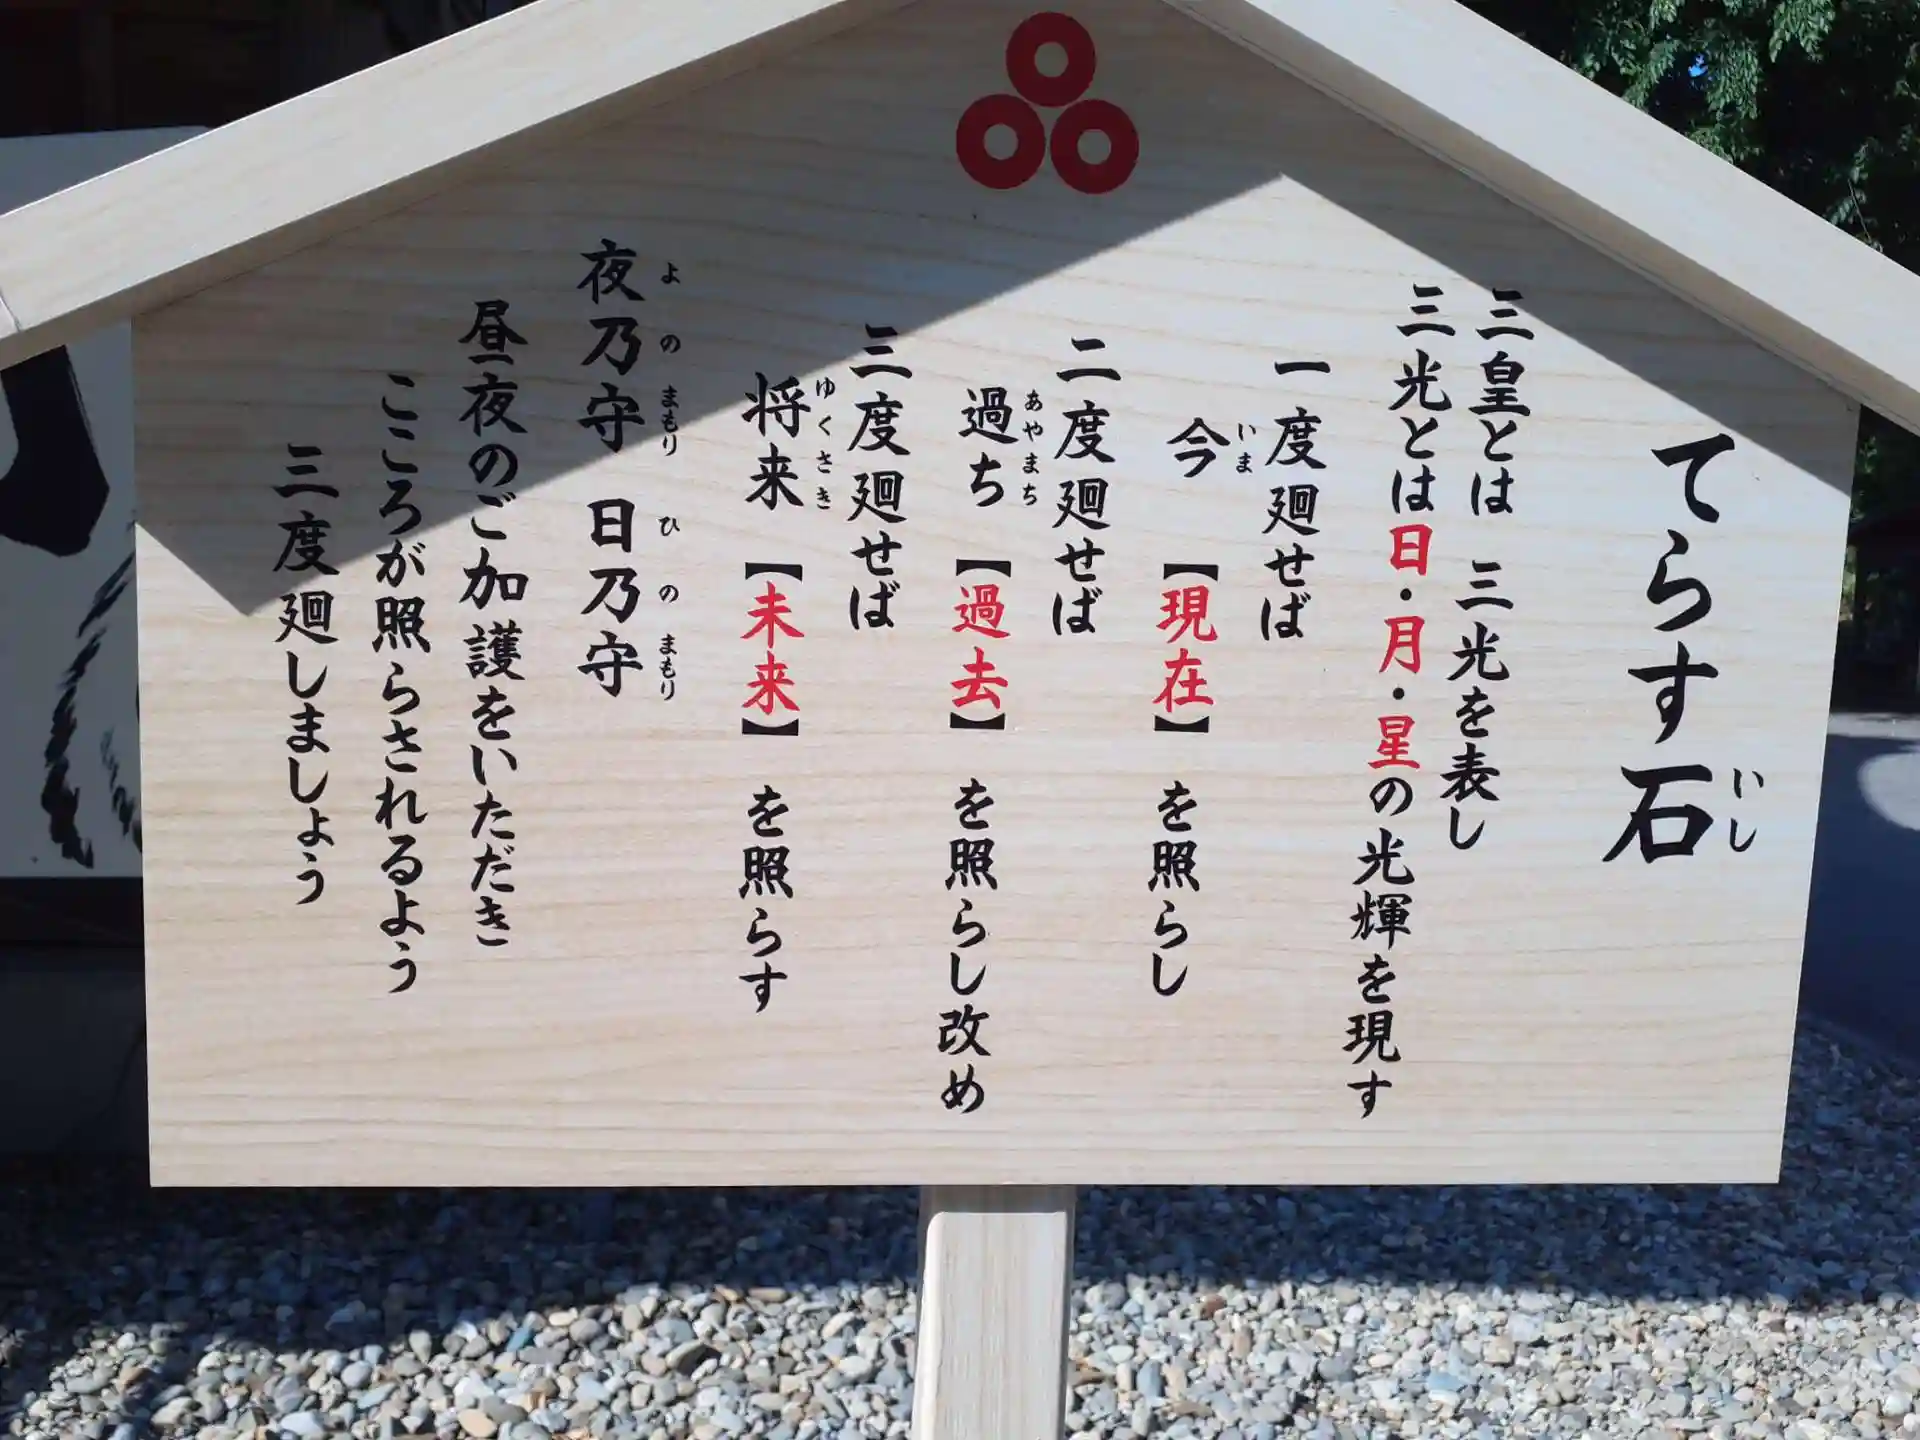 てらす石
いし
三皇とは 三光を表し
三光とは日・月・星の光輝を現す
一度廻せば
今【現在】を照らし
いま
二度廻せば
過ち【過去】を照らし改め
あやまち
三度廻せば
将来【未来】を照らす
ゆくさき
夜乃守 日乃守
よのまもり ひのまもり
昼夜のご加護をいただき
こころが照らされるよう
三度廻しましょう